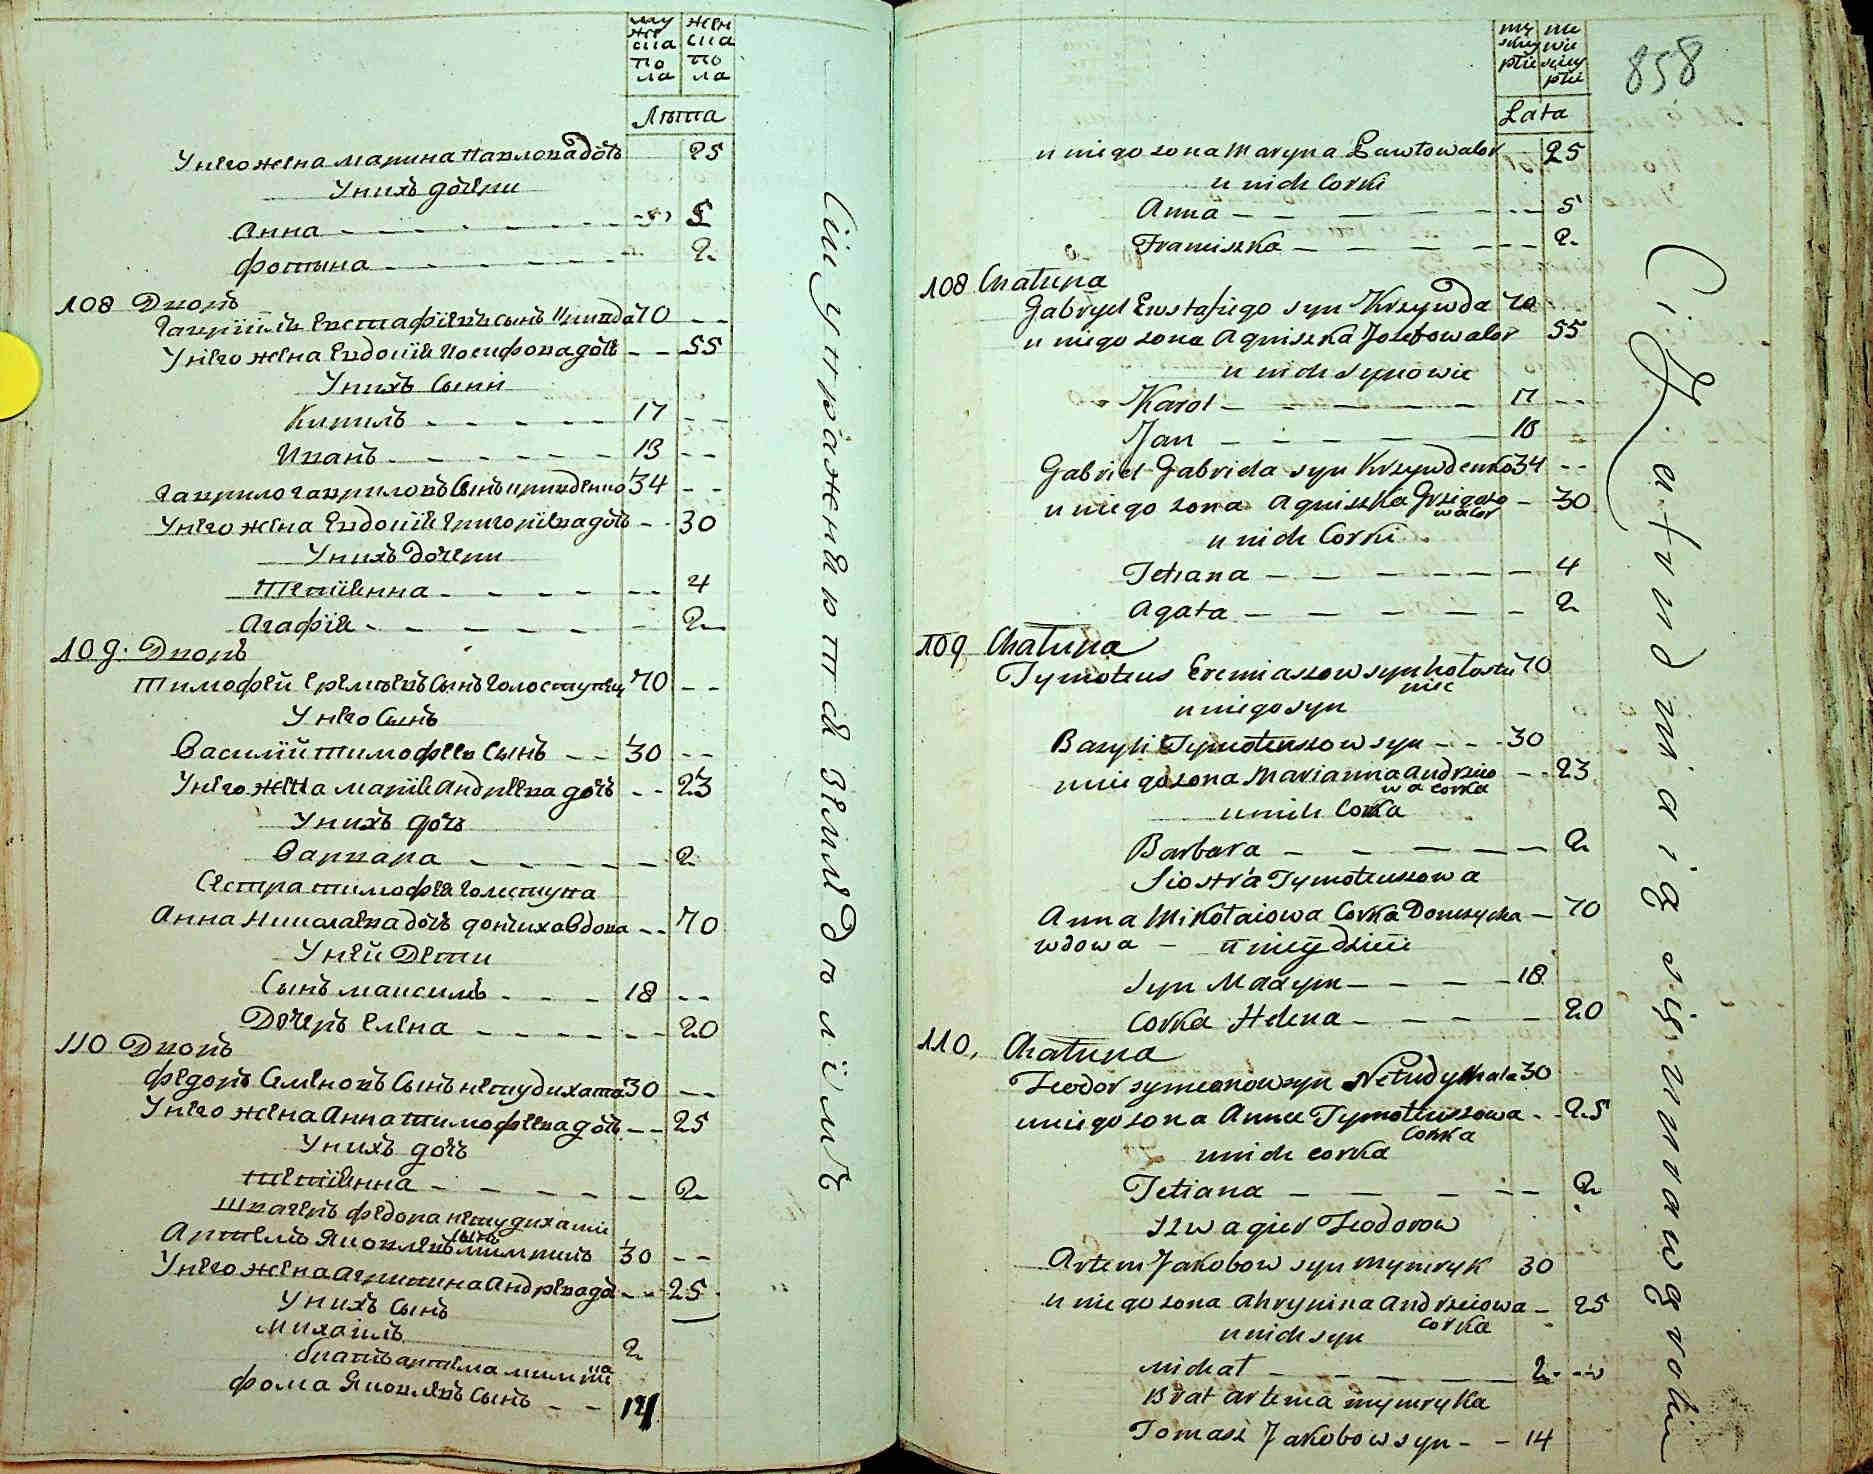 муж
ска
по
ла
жен
ска
по
ла
Лѣта
У него жена марина Павлова дочь 25
У нихъ дочери
Анна 5
фотина 2
108 Дворъ
Гавріилъ Евстафіевъ сынъ Кривда 70
У него жена Евдокія Иосифова дочь 55
У нихъ сыни
Кирилъ 17
Иванъ 13
Гаврило гавриловъ Сынъ кривденко 34
У него жена Евдокія Григоріева дочь 30
У нихъ дочери
Тетіянна 4
Агафія 2
109. Дворъ
Тимофей Еремѣевъ Сынъ Голоступец 70
У него Сынъ
Василій тимофеев Сынъ 30
У него жена марія Андреева дочь 23
У нихъ дочь
Варвара 2
Сестра тимофея
Анна Николаева дочь вдова 70
У ней Дети
Сынъ максимъ 18
Дочеръ Елена 20
110 Дворъ
федоръ Семеновъ Сынъ нетудихата 30
У него жена Анна тимофеева дочь 25
У нихъ дочь
тетіянна 2
Швагеръ федора нетудихати
Артемъ Яковлевъ сынъ мимрикъ 30
У него жена агрипина Андреева до 25
У нихъ Сынъ
михаилъ 2
братъ артема мимрика
фома Яковлевъ Сынъ 14
Сіи упражняются земледѣліемъ
858
mę
skiey
płci
nie
wie
sciey
płci
Lata
u niego zona Maryna Pawłowa cor 25
u nich Corki
Anna 5
Franciszka 2
108 Chałupa
Gabryel Eustafiego syn Krzywda 70
u niego zona Agniszka Jozefowa cor 55
u nich synowie
Karol 17
Jan 18
Gabriel Gabriela syn Krzywdenko 34
u niego zona Agniszka Grzigorzo
wa cor 30
u nich Corki
Tetiana 4
Agata 2
109 Chałupa
Tymoteus Eremiaszow syn hołostu
piec 70
u niego syn
Bazyli Tymoteuszow syn 30
u niego zona Marianna andrzeio
wa corka 23
u nich Corka
Barbara 2
Siostra Tymoteuszowa
Anna Mikołaiowa Corka Donczycha 70
wdowa u niey dzieci
syn Maxym 18
Corka Helena 20
110, Chałupa
Teodor symeonow syn Netudychata 30
u niego zona Anna Tymoteuszowa
Corka 25
u nich corka
Tetiana 2
szwagier Teodorow
Artem Jakobow syn mymryk 30
u niego zona ahrypina Andrzeiowa
corka 25
u nich syn
Michał 2
Brat artema mymryka
Tomasz Jakobow syn 14
Ci gatunk